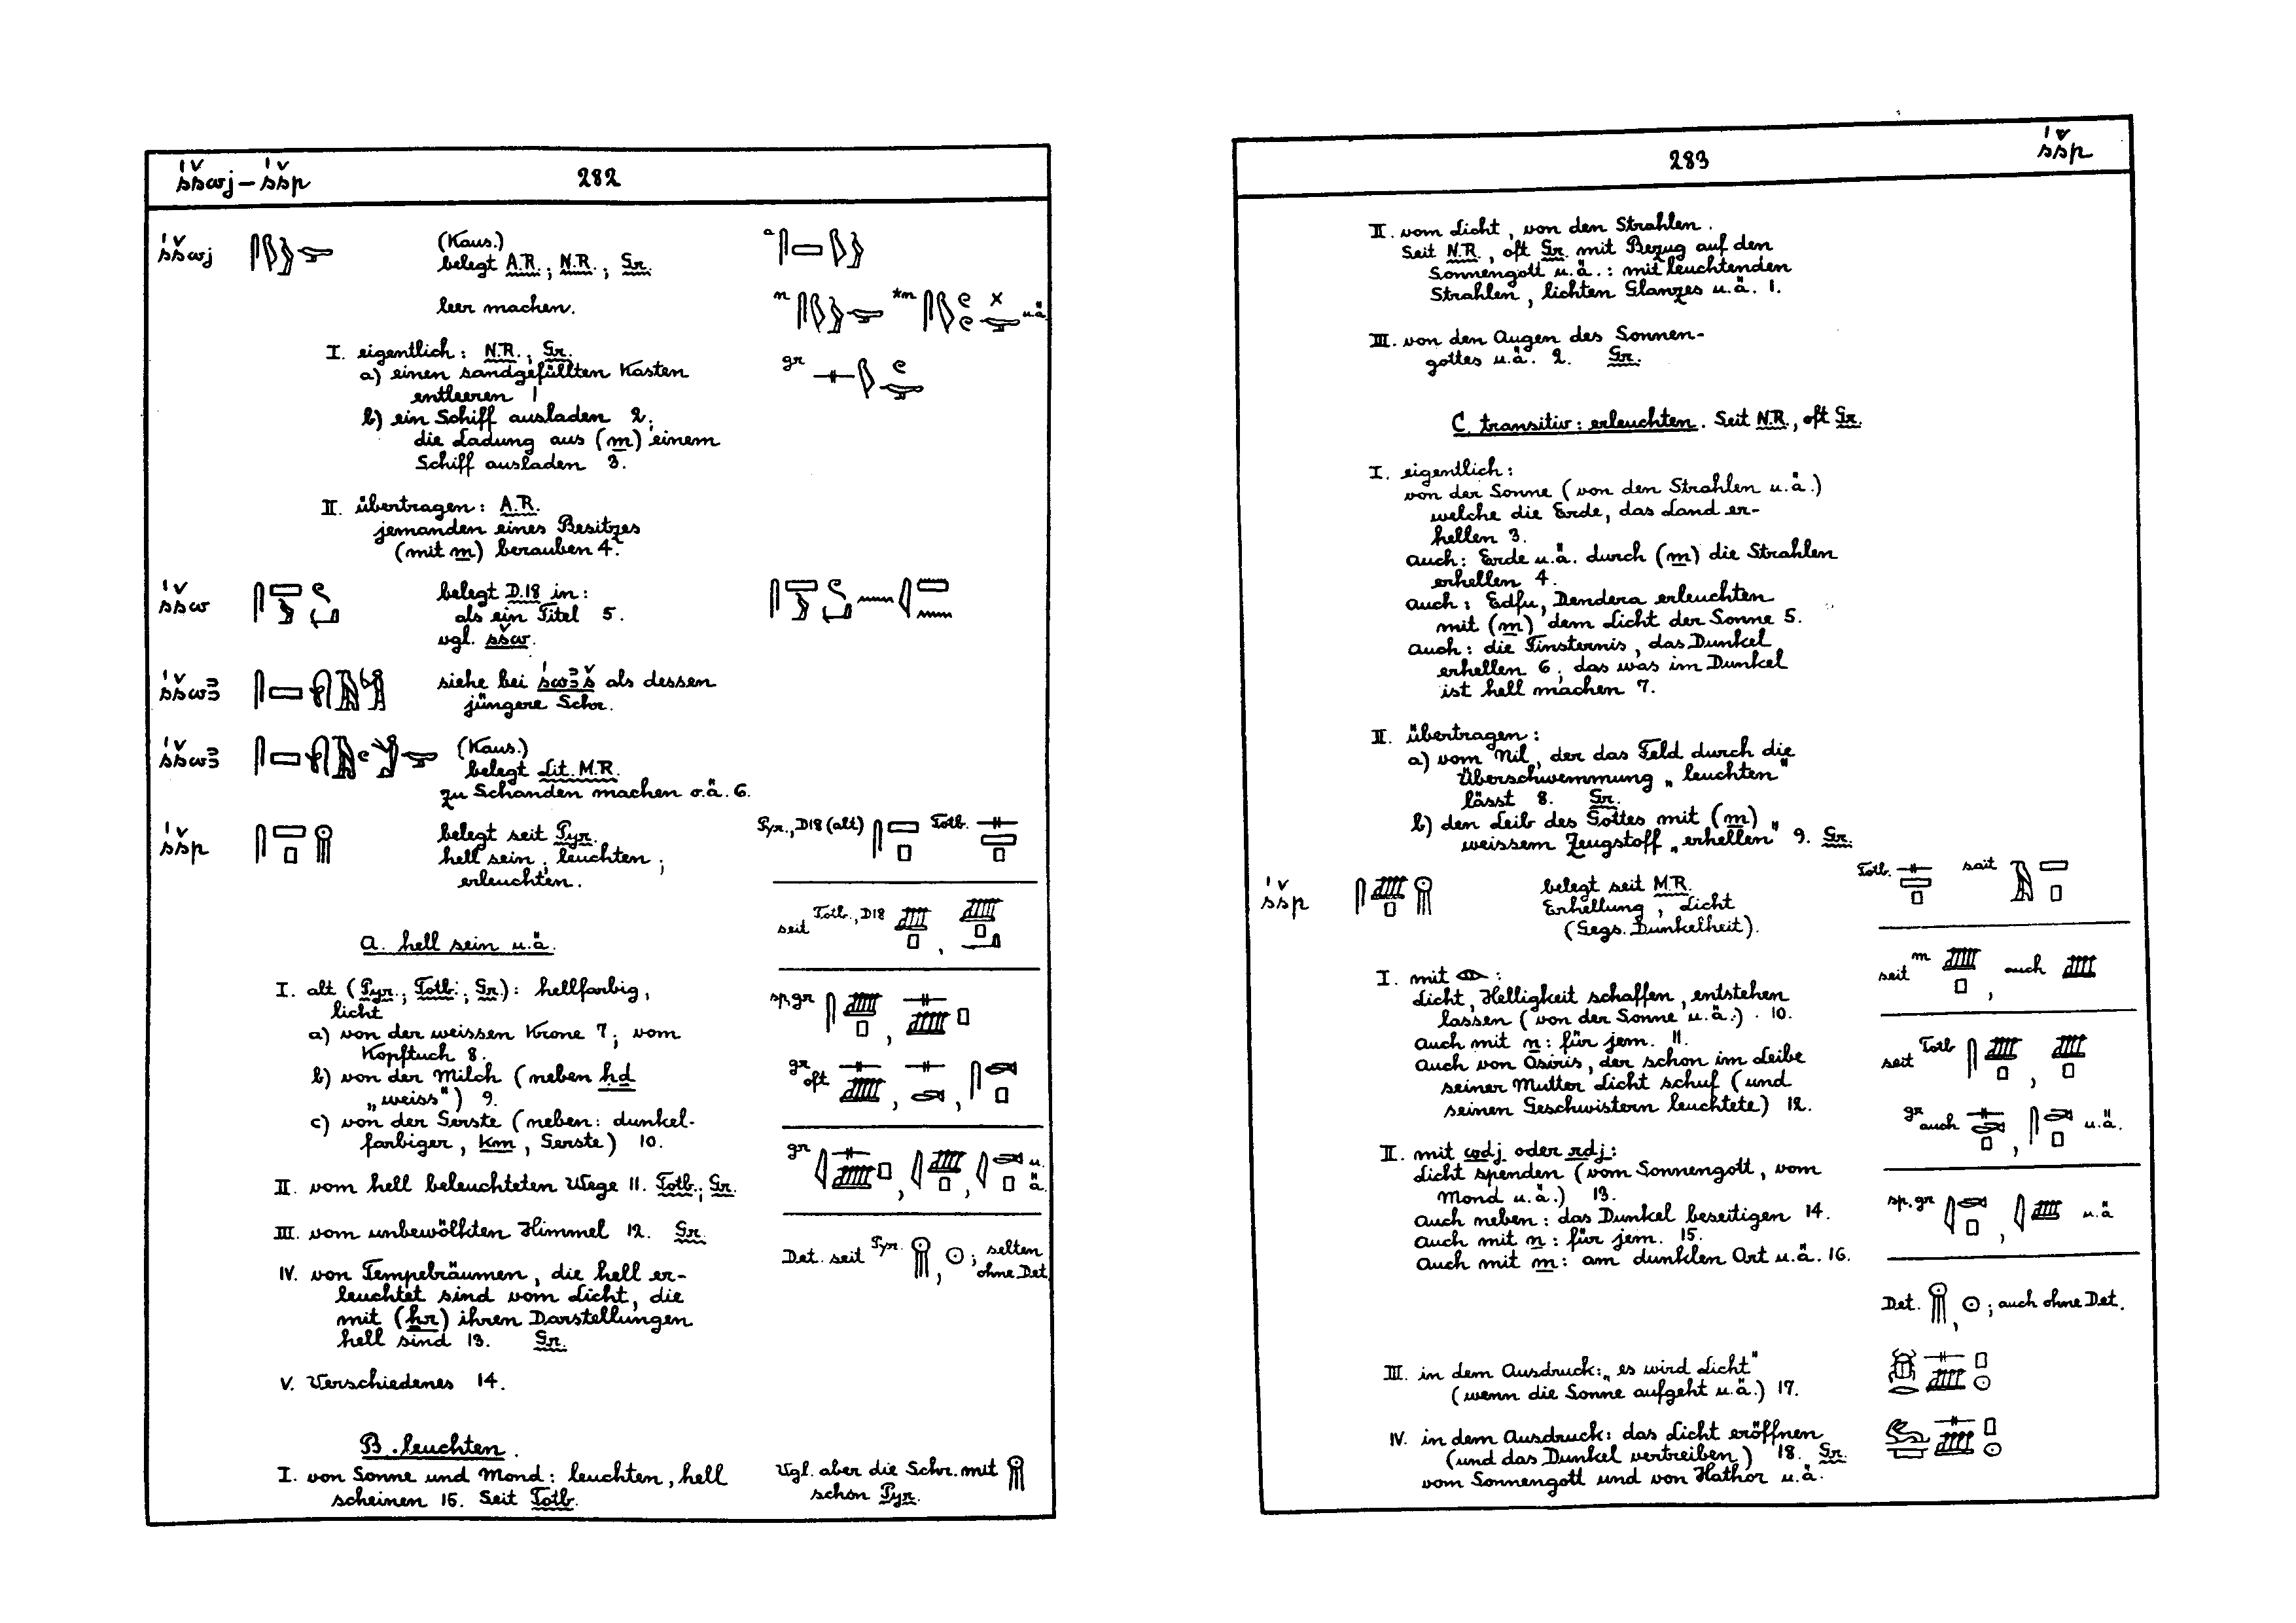 śšwj – śšp
282
śšwj
(Kaus.)
belegt A.R.; N.R.; Gr.
leer machen.
I. eigentlich: N.R.; Gr.
a) einen sandgefüllten Kasten
entleeren 1
b) ein Schiff ausladen 2;
die Ladung aus (m) einem
Schiff ausladen 3.
II. übertragen: A.R.
jemanden eines Besitzes
(mit m) berauben 4.
a
n
*m
u.ä.
gr
śšw
belegt D.18 in:
als ein Titel 5.
vgl. sšw.
śšwꜣ
siehe bei św\u{a723}š als dessen
jüngere Schr.
śšwꜣ
(Kaus.)
belegt Lit. M.R.
zu Schanden machen o.ä. 6.
śšp
belegt seit Pyr.
hell sein; leuchten;
erleuchten.
Pyr., D18 (alt)
Totb.
seit Totb., D18
A. hell sein u.ä.
I. alt (Pyr.; Totb.; Gr.): hellfarbig,
licht
a) von der weissen Krone 7; vom
Kopftuch 8.
b) von der Milch (neben ḥḏ
„weiss") 9.
c) von der Gerste (neben: dunkel-
farbiger, km, Gerste) 10.
II. vom hell beleuchteten Wege 11. Totb.; Gr.
III. vom unbewölkten Himmel 12. Gr.
IV. von Tempelräumen, die hell er-
leuchtet sind vom Licht, die
mit (ḥr) ihren Darstellungen
hell sind 13. Gr.
V. Verschiedenes 14.
sp. gr
gr
oft
gr
u.
ä.
Det. seit Pyr. , ; selten
ohne Det.
B. leuchten.
I. von Sonne und Mond: leuchten, hell
scheinen 15. Seit Totb.
Vgl. aber die Schr. mit
schon Pyr.
283
śšp
II. vom Licht, von den Strahlen.
Seit N.R., oft Gr. mit Bezug auf den
Sonnengott u.ä.: mit leuchtenden
Strahlen, lichten Glanzes u.ä. 1.
III. von den Augen des Sonnen-
gottes u.ä. 2. Gr.
C. transitiv: erleuchten. Seit N.R., oft Gr.
I. eigentlich:
von der Sonne (von den Strahlen u.ä.)
welche die Erde, das Land er-
hellen 3.
auch: Erde u.ä. durch (m) die Strahlen
erhellen 4.
auch: Edfu, Dendera erleuchten
mit (m) dem Licht der Sonne 5.
auch: die Finsternis, das Dunkel
erhellen 6; das was im Dunkel
ist hell machen 7.
II. übertragen:
a) vom Nil, der das Feld durch die
Überschwemmung „leuchten"
lässt 8. Gr.
b) den Leib des Gottes mit (m)
weissem Zeugstoff „erhellen" 9. Gr.
śšp
belegt seit M.R.
Erhellung, Licht
(Gegs. Dunkelheit).
Totb.
sait
seit m
auch
I. mit :
Licht, Helligkeit schaffen, entstehen
lassen (von der Sonne u.ä.) 10.
auch mit n: für jem. 11.
Auch von Osiris, der schon im Leibe
seiner Mutter Licht schuf (und
seinen Geschwistern leuchtete) 12.
seit Totb
gr
auch
u.ä.
II. mit wdj oder rdj:
Licht spenden (vom Sonnengott, vom
Mond u.ä.) 13.
auch neben: das Dunkel beseitigen 14.
auch mit n: für jem. 15.
Auch mit m: am dunklen Ort u.ä. 16.
sp. gr
u.ä
Det. , ; auch ohne Det.
III. in dem Ausdruck: „es wird Licht"
(wenn die Sonne aufgeht u.ä.) 17.
IV. in dem Ausdruck: das Licht eröffnen
(und das Dunkel vertreiben) 18. Gr.
vom Sonnengott und von Hathor u.ä.